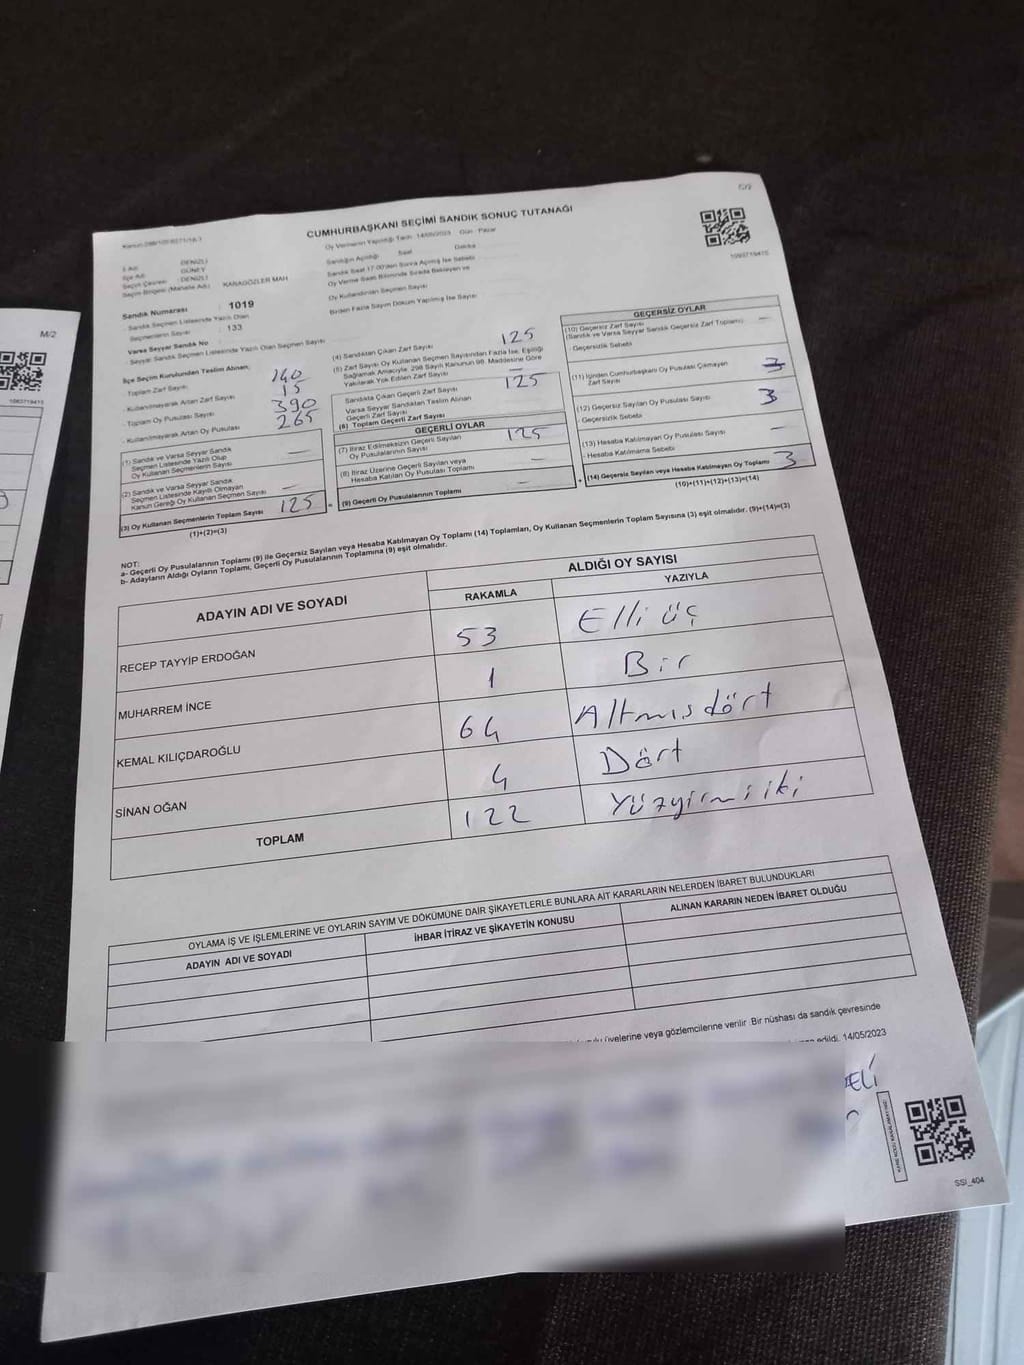 M/2
1093719415
C/2
CUMHURBAŞKANI SEÇİMİ SANDIK SONUÇ TUTANAĞI
Oy Vermenin Yapıldığı Tarih : 14/05/2023 Gün : Pazar
1093719415
İl Adı : DENİZLİ
İlçe Adı : GÜNEY
Seçim Çevresi : DENİZLİ
Seçim Bölgesi (Mahalle Adı) : KARAGÖZLER MAH
Sandığın Açıldığı Saat Dakika
Sandık Saat 17:00'den Sonra Açılmış İse Sebebi
Oy Verme Saati Bitiminde Sırada Bekleyen ve
Oy Kullandırılan Seçmen Sayısı
Birden Fazla Sayım Döküm Yapılmış İse Sayısı
Sandık Numarası : 1019
Sandık Seçmen Listesinde Yazılı Olan
Seçmenlerin Sayısı : 133
Varsa Seyyar Sandık No
Seyyar Sandık Seçmen Listesinde Yazılı Olan Seçmen Sayısı
İlçe Seçim Kurulundan Teslim Alınan;
Toplam Zarf Sayısı 140
- Kullanılmayarak Artan Zarf Sayısı 15
Toplam Oy Pusulası Sayısı 390
- Kullanılmayarak Artan Oy Pusulası 265
(1) Sandık ve Varsa Seyyar Sandık
Seçmen Listesinde Yazılı Olup
Oy Kullanan Seçmenlerin Sayısı —
(2) Sandık ve Varsa Seyyar Sandık
Seçmen Listesinde Kayıtlı Olmayan
Kanun Gereği Oy Kullanan Seçmen Sayısı —
(3) Oy Kullanan Seçmenlerin Toplam Sayısı 125
(1)+(2)=(3)
(4) Sandıktan Çıkan Zarf Sayısı 125
(5) Zarf Sayısı Oy Kullanan Seçmen Sayısından Fazla İse, Eşitliği
Sağlamak Amacıyla, 298 Sayılı Kanunun 98. Maddesine Göre
Yakılarak Yok Edilen Zarf Sayısı —
Sandıkta Çıkan Geçerli Zarf Sayısı 125
Varsa Seyyar Sandıktan Teslim Alınan
Geçerli Zarf Sayısı
(6) Toplam Geçerli Zarf Sayısı
GEÇERLİ OYLAR
(7) İtiraz Edilmeksizin Geçerli Sayılan
Oy Pusulalarının Sayısı 125
(8) İtiraz Üzerine Geçerli Sayılan veya
Hesaba Katılan Oy Pusulası Toplamı —
(9) Geçerli Oy Pusulalarının Toplamı —
GEÇERSİZ OYLAR
(10) Geçersiz Zarf Sayısı
(Sandık ve Varsa Seyyar Sandık Geçersiz Zarf Toplamı) —
- Geçersizlik Sebebi
(11) İçinden Cumhurbaşkanı Oy Pusulası Çıkmayan
Zarf Sayısı 3
(12) Geçersiz Sayılan Oy Pusulası Sayısı 3
- Geçersizlik Sebebi
(13) Hesaba Katılmayan Oy Pusulası Sayısı —
- Hesaba Katılmama Sebebi
(14) Geçersiz Sayılan veya Hesaba Katılmayan Oy Toplamı 3
(10)+(11)+(12)+(13)=(14)
NOT:
a- Geçerli Oy Pusulalarının Toplamı (9) ile Geçersiz Sayılan veya Hesaba Katılmayan Oy Toplamı (14) Toplamları, Oy Kullanan Seçmenlerin Toplam Sayısına (3) eşit olmalıdır. (9)+(14)=(3)
b- Adayların Aldığı Oyların Toplamı, Geçerli Oy Pusulalarının Toplamına (9) eşit olmalıdır.
ADAYIN ADI VE SOYADI
ALDIĞI OY SAYISI
RAKAMLA YAZIYLA
RECEP TAYYİP ERDOĞAN 53 Elli üç
MUHARREM İNCE 1 Bir
KEMAL KILIÇDAROĞLU 64 Altmısdört
SİNAN OĞAN 4 Dört
TOPLAM 122 Yüzyirmiiki
OYLAMA İŞ VE İŞLEMLERİNE VE OYLARIN SAYIM VE DÖKÜMÜNE DAİR ŞİKAYETLERLE BUNLARA AİT KARARLARIN NELERDEN İBARET BULUNDUKLARI
ADAYIN ADI VE SOYADI
İHBAR İTİRAZ VE ŞİKAYETİN KONUSU
ALINAN KARARIN NEDEN İBARET OLDUĞU
üyelerine veya gözlemcilerine verilir. Bir nüshası da sandık çevresinde
edildi. 14/05/2023
SSI_404